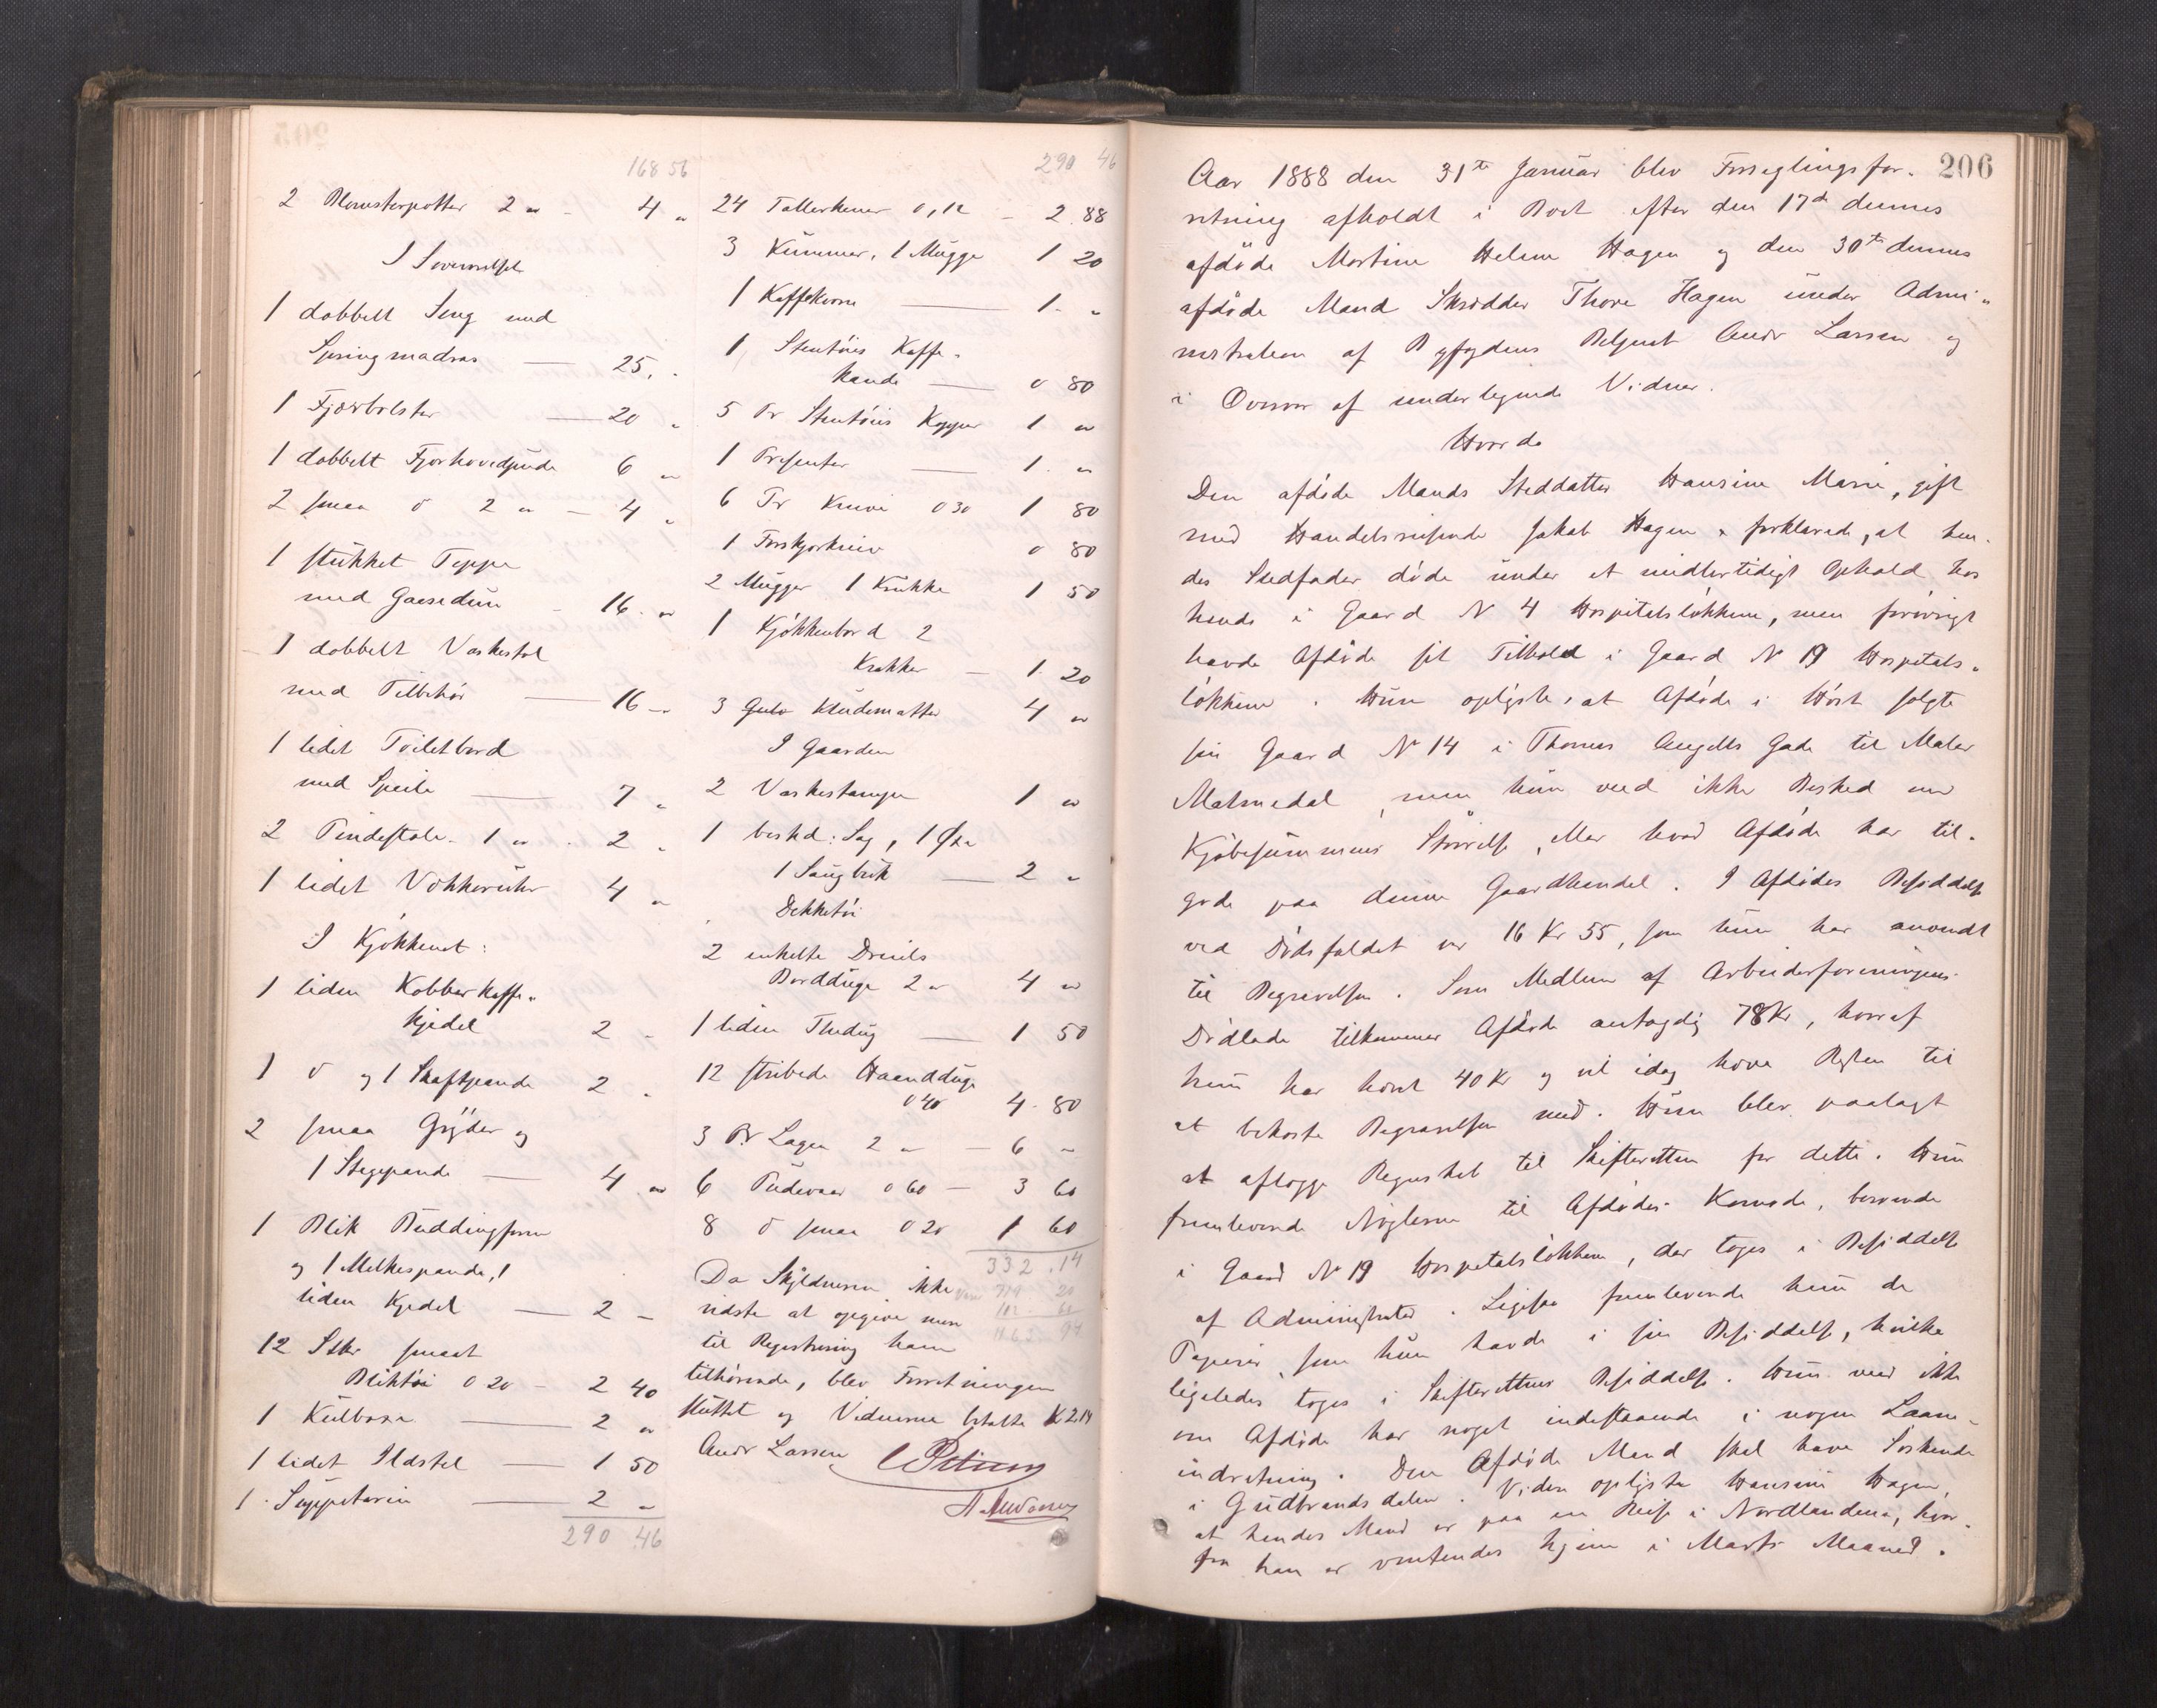 168 56
2 Blomsterpotter 2 „ – 4 „
I Soverværelset
1 dobbelt Seng med
Springmadras — 25 „
1 Fjærbolster — 20 „
1 dobbelt Fjærhovedpude 6 „
2 smaa d 2 „ – 4 „
1 stukket Teppe
med Gaasedun – 16 „
1 dobbelt Vaskestol
med Tilbehør — 16 „
1 lidet Toiletbord
med Speile — 7 „
2 Pindestole 1 „ – 2 „
1 lidet Vækkeruhr 4 „
I Kjøkkenet:
1 liden Kobberkaffe„
kjedel 2 –
1 d og 1 Skaftpande 2 „
2 smaa Gryder og
1 Stegepande — 4 „
1 Blik Buddingform
og 1 Melkespande, 1
liden Kjedel — 2 –
12 Stkr smaat
Bliktøi 0 20 – 2 40
1 Kulbaxe — 2 „
1 lidet Ildstel — 1 50
1 Suppeterin — 2 „
290 46
290 46
24 Tallerkener 0,12 – 2.88
3 Kummer, 1 Mugge 1 20
1 Kaffekvern — 1. „
1 Stentøis Kaffe„
kande — 0 80
5 Pr Stentøis Kopper 1 „
1 Presenter — 1. „
6 Pr Knive 0 30 1 80
1 Forskjærkniv 0 80
2 Mugger 1 Krukke 1 50
1 Kjøkkenbord 2
Krakker — 1. 20
3 Gulv Kludematter 4 „
I Gaarden
2 Vaskestamper 1 „
1 beskd: Sag, 1 Øxe
1 Saugkrak — 2 „
Dekketøi
2 enkelte Dreiels
Borddüge 2 „ 4 „
1 liden Thedug — 1 50
12 stribede Haanddüge
0 40 4. 80
3 Pr Lagen 2 „ – 6 „
6 Pudevaar 0 60 – 3 60
8 d smaa 0 20 1 60
332.14
Da Skyldneren ikke
vidste at opgive mere
til Registrering ham
tilhørende, blev Forretningen
sluttet og Vidnerne betalte K 2.14
Andr Larsen
206
Aar 1888 den 31te Januar blev Forseglingsfor-
retning afholdt i Boet efter den 17de dennes
afdøde Martine Helene Hagen og den 30te dennes
afdøde Mand Skrædder Thore Hagen under Admi„
nistration af Byfogdens Betjent Andr Larsen og
i Overvær af underlegnede Vidner.
Hvorda
Den afdøde Mands Steddatter Hansine Marie, gift
med Handelsreisende Jakob Hagen, forklarede, at hen-
des Stedfader døde under et midlertidigt Ophold hos
hende i Gaard N 4 Hospitalsløkkene, men forøvrigt
havde Afdøde sit Tilhold i Gaard N 19 Hospitals„
løkkene. Hun oplyste, at Afdøde i Høst solgte
sin Gaard N 14 i Thomas Angells Gade til Maler
Malmedal, men hun veed ikke Besked om
Kjøbesummens Størrelse, eller hvad Afdøde har til-
gode paa denne Gaardhandel. I Afdødes Besiddelse
ved Dødsfaldet var 16 Kr 55, som hun har anvendt
til Begravelsen. Som Medlem af Arbeiderforeningens
Dødlade tilkommer Afdøde antagelig 78 Kr, hvoraf
hun har hævet 40 Kr og vil idag hæve Resten til
at bekoste Begravelsen med. Hun blev paalagt
at aflægge Regnskab til Skifteretten for dette. Hun
fremleverede Nøglerne til Afdødes Komode, beroende
i Gaard N 19 Hospitalsløkkene, der toges i Besiddelse
af Administrator. Ligesaa fremleverede hun de
Papirer som hun havde i sin Besiddelse, hvilke
ligeledes toges i Skifterettens Besiddelse. Hun veed ikke
om Afdøde har noget indestaaende i nogen Laane-
indretning. Den Afdøde Mand skal have Søskende
i Gudbrandsdalen. Videre oplyste Hansine Hagen,
at hendes Mand er paa en Reise i Nordlandene, hvor-
fra han er ventendes hjem i Marts Maaned.